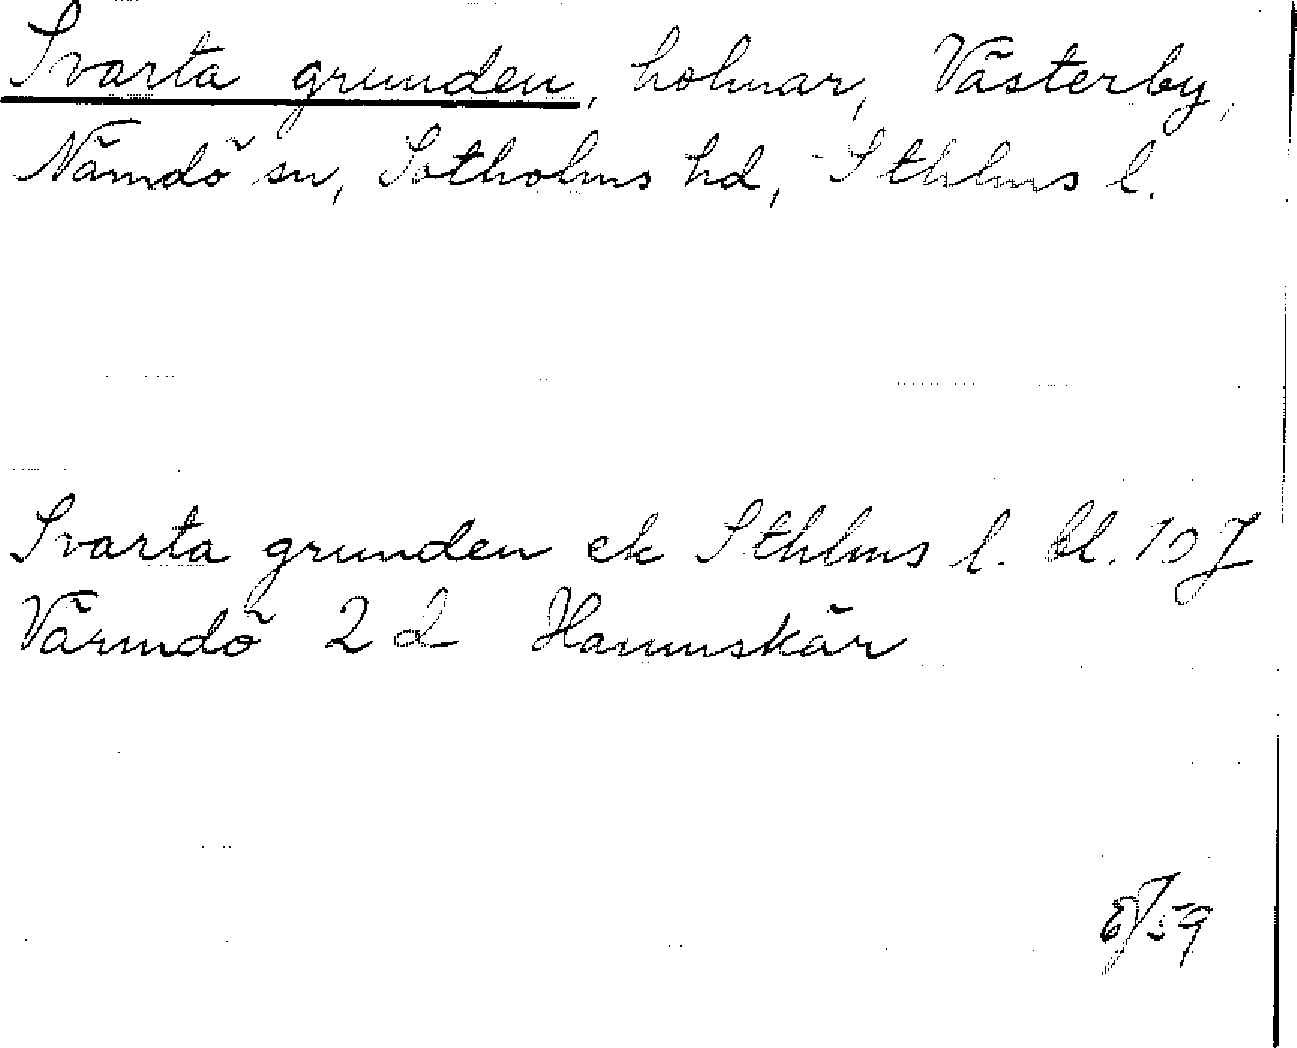 Svarta grunden, holmar, Västerby,
Nämdö sn, Sotholms hd, Sthlms l.
Svarta grunden ek Sthlms l. bl. 107
Värmdö 2 d Hamnskär